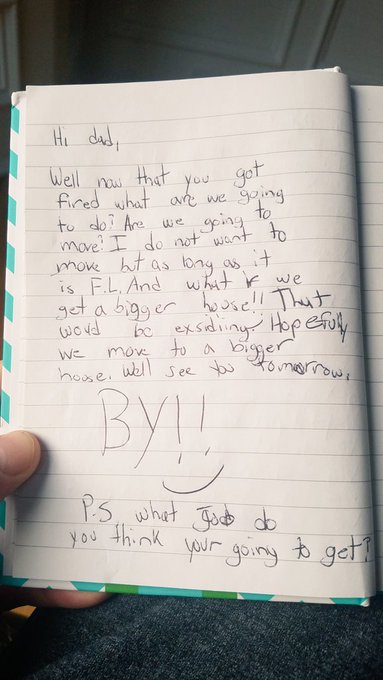 Hi dad,
Well now that you got
fired what are we going
to do? Are we going to
move? I do not want to
move but as long as it
is F.L. And what if we
get a bigger house!! That
woud be exsidiing Hopefully
we move to a bigger
house. Well see you tomorrow.
BY!!
P.S what job do
you think your going to get?